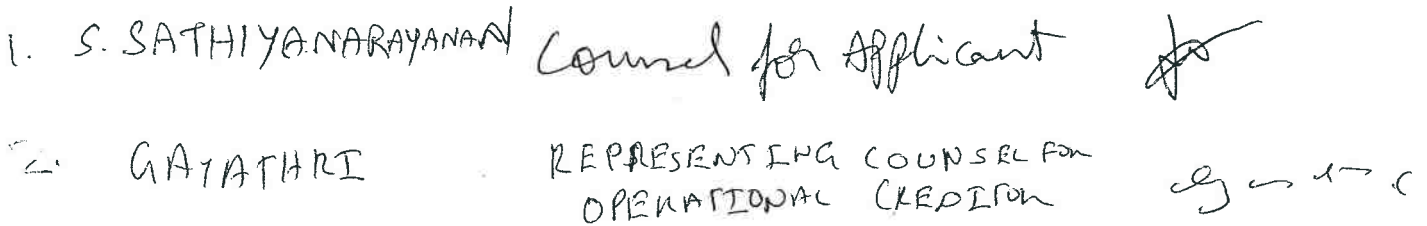 1. S. SATHIYANARAYANAN Counsel for Applicant
2. GAYATHRI REPRESENTING COUNSEL FOR
OPERATIONAL CREDITOR